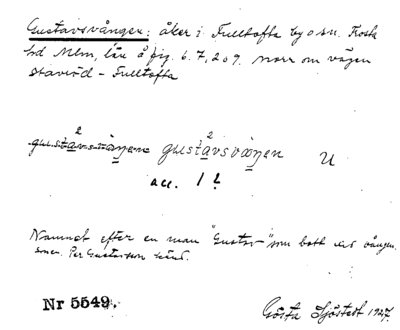 Gustavsvången: åker i Fulltofta by o sn. Frosta
hd Mlm, län å fig. 6. 7, 2 o 9. norr om vägen
 - Fulltofta
gustavsväŋen gustavsvaŋen U
acc. 1 2
Namnet efter en man "Gustav" som bott vid vången.
 Per Gustavsson
Nr 5549.
Gösta Sjöstedt 1927.